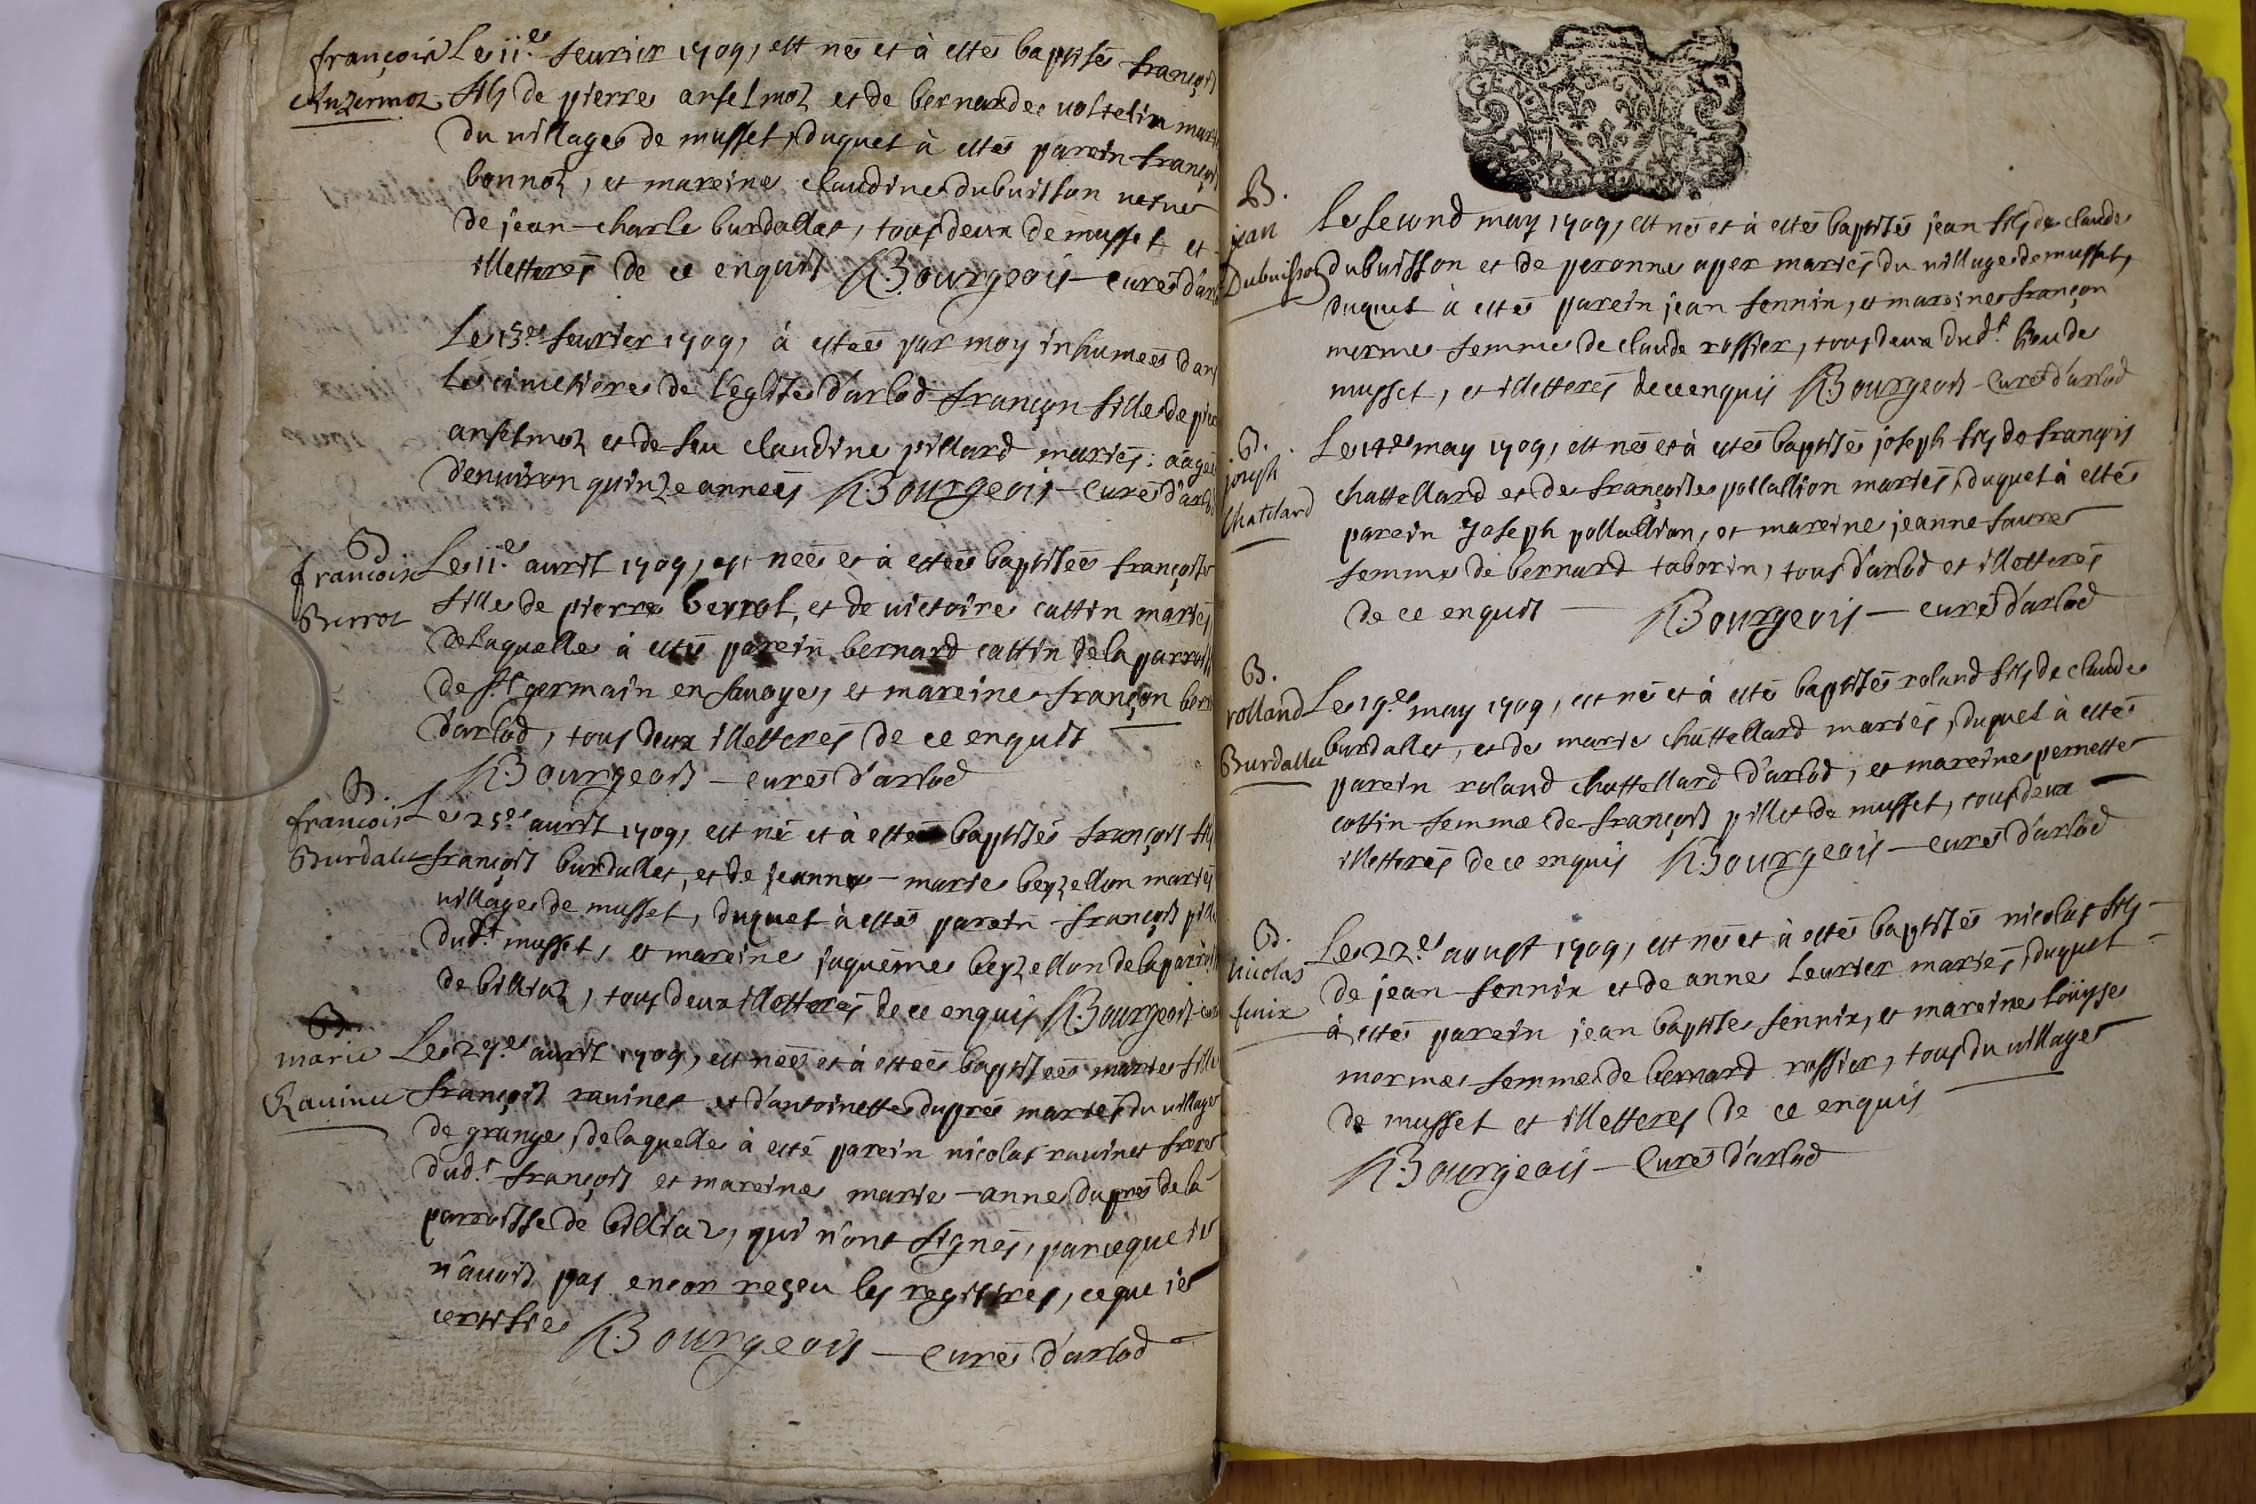 françois
Anzermoz
Le 11.e feurier 1709, est né et à estés baptisé françois
fils de pierre anselmoz et de bernarde uostelin
du uillage de musset, duquel à estés parein françois
bonnoz, et mareine claudine dubuisson uefue
de jean-charle burdallet, tous deux de musset et
illetterés de ce enquis Bourgeois curé
Le 15.e feurier 1709, à estée par moy inhumeés dans
le cimetiere de l'eglise d'arlod françon fille de
anselmoz et de feu claudine pillard mariés; aágeé
denuiron quinze anneés Bourgeois curé d'arlod
B
francoise
Berrot
Le 11.e auril 1709, est neé et à esteé baptiseé françoise
fille de pierre berrot, et de uictoire cattin mariés
de laquelle à estés parein bernard cattin de la parroisse
de st germain en sauoye, et mareine françon
d'arlod, tous deux illetterés de ce enquis
Bourgeois curé d'arlod
B.
francois
Burdalet
Le 25.e auril 1709, est né et à estés baptisés françois fils
françois burdallet, et de jeanne-marie beyzellon mariés
uillage de musset, duquel à estés parein françois
dud.t musset, et mareine jaquéme beyzellon de la parroisse
de billiaz, tous deux illetterés de ce enquis Bourgeois
B.
marie
Rauinet
Le 27.e auril 1709, est neé et à esteé baptiseé marie fille
françois rauinet et d'antoinette dupré mariés du uillage
de grange, de laquelle à esté parein nicolas rauinet frere
dud.t françois et mareine marie-anne dupré de la
parroisse de billiaz, qui n'ont signés, parceque ie
n'auois pas encor reçeu les registres, ce que ie
certifie Bourgeois curé d'arlod
GENER
B.
jean
Dubuisson
Le second may 1709, est né et à estés baptisés jean fils de claude
dubuisson et de peronne aper mariés du uillage de musset,
duquel à estés parein jean fennin, et mareine françon
merme femme de claude rossier, tous deux dud.t lieu de
musset, et illetterés de ce enquis Bourgeois curé d'arlod
B.
joseph
Chatelard
Le 14.e may 1709, est né et à estés baptisés joseph fils de françois
chattellard et de françoise pollallion mariés, duquel à estés
parein Joseph pollallion, et mareine jeanne faure
femme de bernard taborin, tous d'arlod et illetterés
de ce enquis Bourgeois curé d'arlod
B.
rolland
Burdallet
Le 19.e may 1709, est né et à estés baptisés roland fils de claude
burdallet, et de marie chattellard mariés, duquel à estés
parein roland chattellard d'arlod, et mareine pernette
cottin femme de françois pillet de musset, tous deux
illetterés de ce enquis Bourgeois curé d'arlod
B.
nicolas
fenix
Le 22.e aoust 1709, est né et à estés baptisés nicolas fils
de jean fennix et de anne leurier mariés, duquel
à estés parein jean baptiste fennix, et mareine loüyse
merme femme de bernard rossier, tous du uillage
de musset et illetteres de ce enquis
Bourgeois curé d'arlod